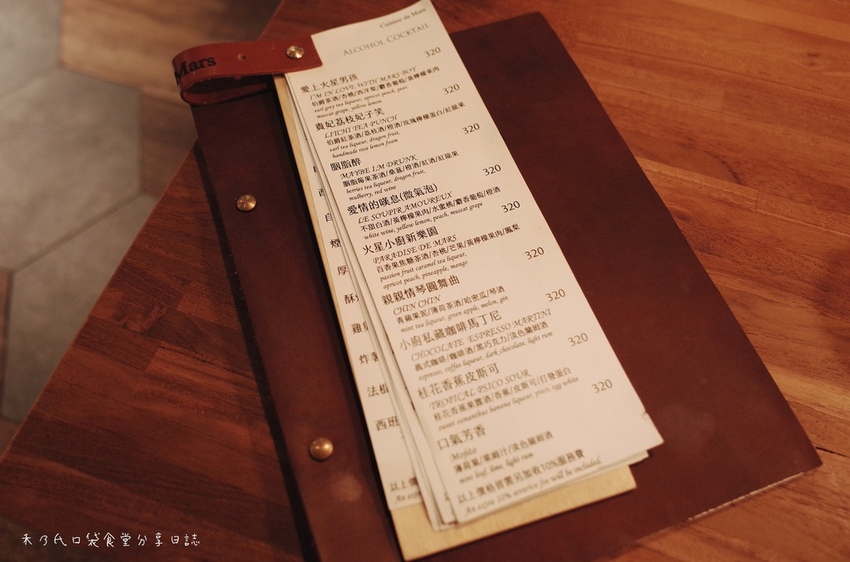 Mars
Cuisine de Mars
ALCOHOL COCKTAIL
愛上火星男孩 320
I'M IN LOVE WITH MARS BOY
伯爵茶酒/杏桃/西洋梨/麝香葡萄/黃檸檬果肉
earl grey tea liqueur, apricot peach, pear,
muscat grape, yellow lemon
貴妃荔枝妃子笑 320
LITCHI TEA PUNCH
伯爵紅茶酒/荔枝酒/橙酒/玫瑰檸檬蛋白/紅龍果
earl tea liqueur, dragon fruit,
handmade rose lemon foam
胭脂醉 320
MAYBE I,M DRUNK
胭脂莓果茶酒/桑葚/橙酒/紅酒/紅龍果
berries tea liqueur, dragon fruit,
mulberry, red wine
愛情的嘆息(微氣泡) 320
LE SOUPIR AMOUREUX
不甜白酒/黃檸檬果肉/水蜜桃/麝香葡萄/橙酒
white wine, yellow lemon, peach, muscat grape
火星小廚新樂園 320
PARADISE DE MARS
百香果焦糖茶酒/杏桃/芒果/黃檸檬果肉/鳳梨
passion fruit caramel tea liqueur,
apricot peach, pineapple, mango
親親情琴圓舞曲 320
CHIN CHIN
青蘋果泥/薄荷茶酒/哈密瓜/琴酒
mint tea liqueur, green apple, melon, gin
小廚私藏咖啡馬丁尼 320
CHOCOLATE ESPRESSO MARTINI
義式咖啡/咖啡酒/黑巧克力/淺色蘭姆酒
espresso, coffee liqueur, dark chocolate, light rum
桂花香蕉皮斯可 320
TROPICAL PSICO SOUR
桂花香蕉果露酒/香蕉/皮斯可/打發蛋白
sweet osmanthus banana liqueur, pisco, egg white
口氣芳香 320
Mojito
薄荷葉/萊姆汁/淺色蘭姆酒
mint leaf, lime, light rum
以上價格皆需另加收10%服務費
An extra 10% service fee will be included.
西
白
煙
厚
酥
雞
炸
法
西班
以上價
An extra
禾乃氏口袋食堂分享日誌